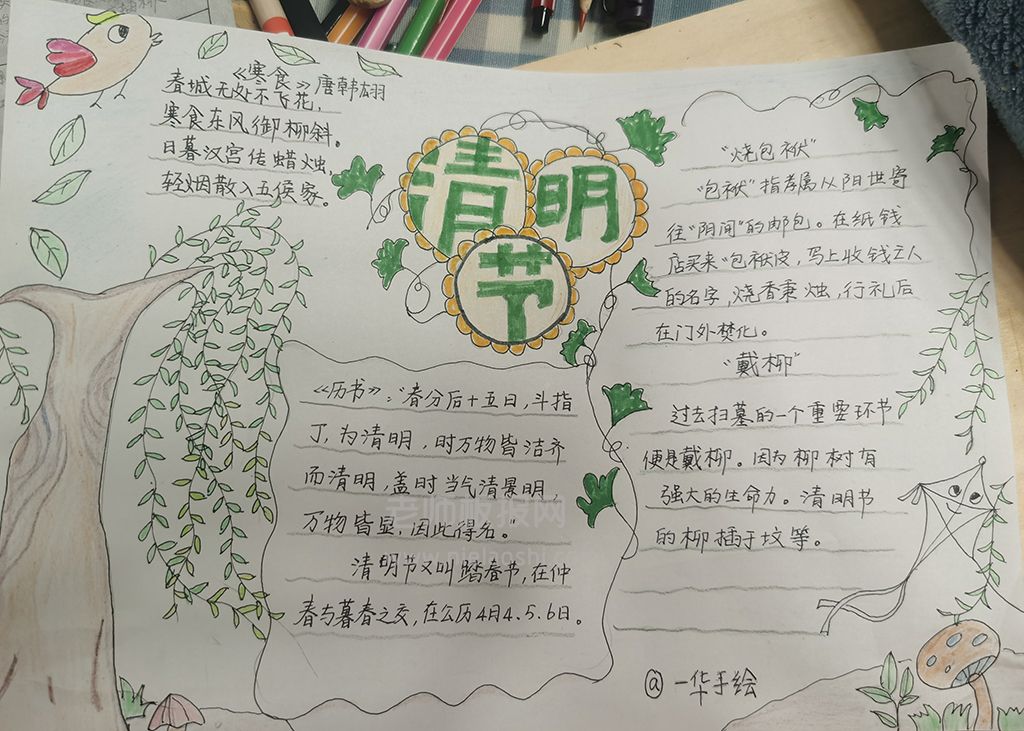 《寒食》唐韩翃
春城无处不飞花，
寒食东风御柳斜。
日暮汉宫传蜡烛，
轻烟散入五侯家。
清明
节
《历书》："春分后十五日，斗指
丁，为清明，时万物皆洁齐
而清明，盖时当气清景明，
万物皆显，因此得名。"
清明节又叫踏春节，在仲
春与暮春之交，在公历4月4、5、6日。
"烧包袱"
"包袱"指孝属从阳世寄
往"阴间"的邮包。在纸钱
店买来"包袱皮，写上收钱之人
的名字，烧香秉烛，行礼后
在门外焚化。
"戴柳"
过去扫墓的一个重要环节
便是戴柳。因为柳树有
强大的生命力。清明节
的柳插于坟等。
@一华手绘
老师板报网